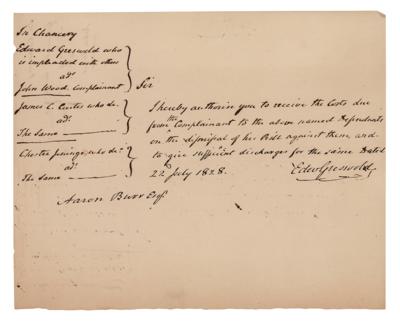 In Chancery
Edward Greswold who
is impleaded with others
ads
John Wood Complainant
James C. Curtis who &c.
ads.
The Same
Chester Jenings who &c.
ads
The Same
Sir
I hereby authorise you to receive the Costs due
the
from Complainant to the above named Defendants
on the dismissal of his Bill against them and
to give sufficient discharges for the same Dated
22 July 1828.
Edw Greswold
Aaron Burr Esqr.